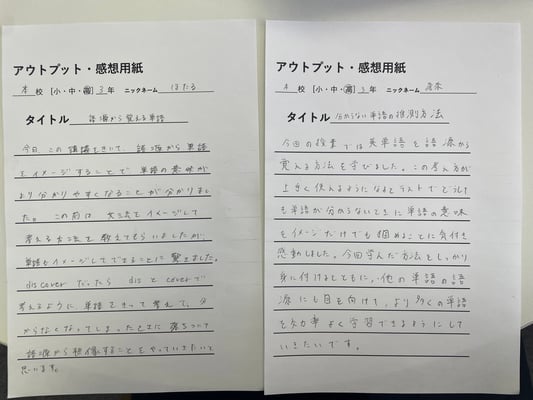 アウトプット・感想用紙
本 校 [小・中・高] 3 年 ニックネーム ほたる
タイトル 語源から覚える単語
今日、この講義をきいて、語源から単語
をイメージすることで、単語の意味が
より分かりやすくなることが分かりまし
た。この前は、文法をイメージして
考える方法を教えてもらいましたが、
単語もイメージしてできることに驚きました。
discoverだったら disとcoverで
考えるように、単語をきって考えて、分
からなくなってしまったときに落ちついて
語源から想像することをやっていきたいと
思います。
アウトプット・感想用紙
本 校 [小・中・高] 3 年 ニックネーム
タイトル 分からない単語の推測方法
今回の授業では英単語を語源から
覚える方法を学びました。この考え方が
上手く使えるようになるとテストでどうして
も単語が分からないときに単語の意味
をイメージだけでも掴めることに気付き
感動しました。今回学んだ方法をしっかり
身に付けるとともに、他の単語の語
源にも目を向けて、より多くの単語
を効率よく学習できるようにして
いきたいです。